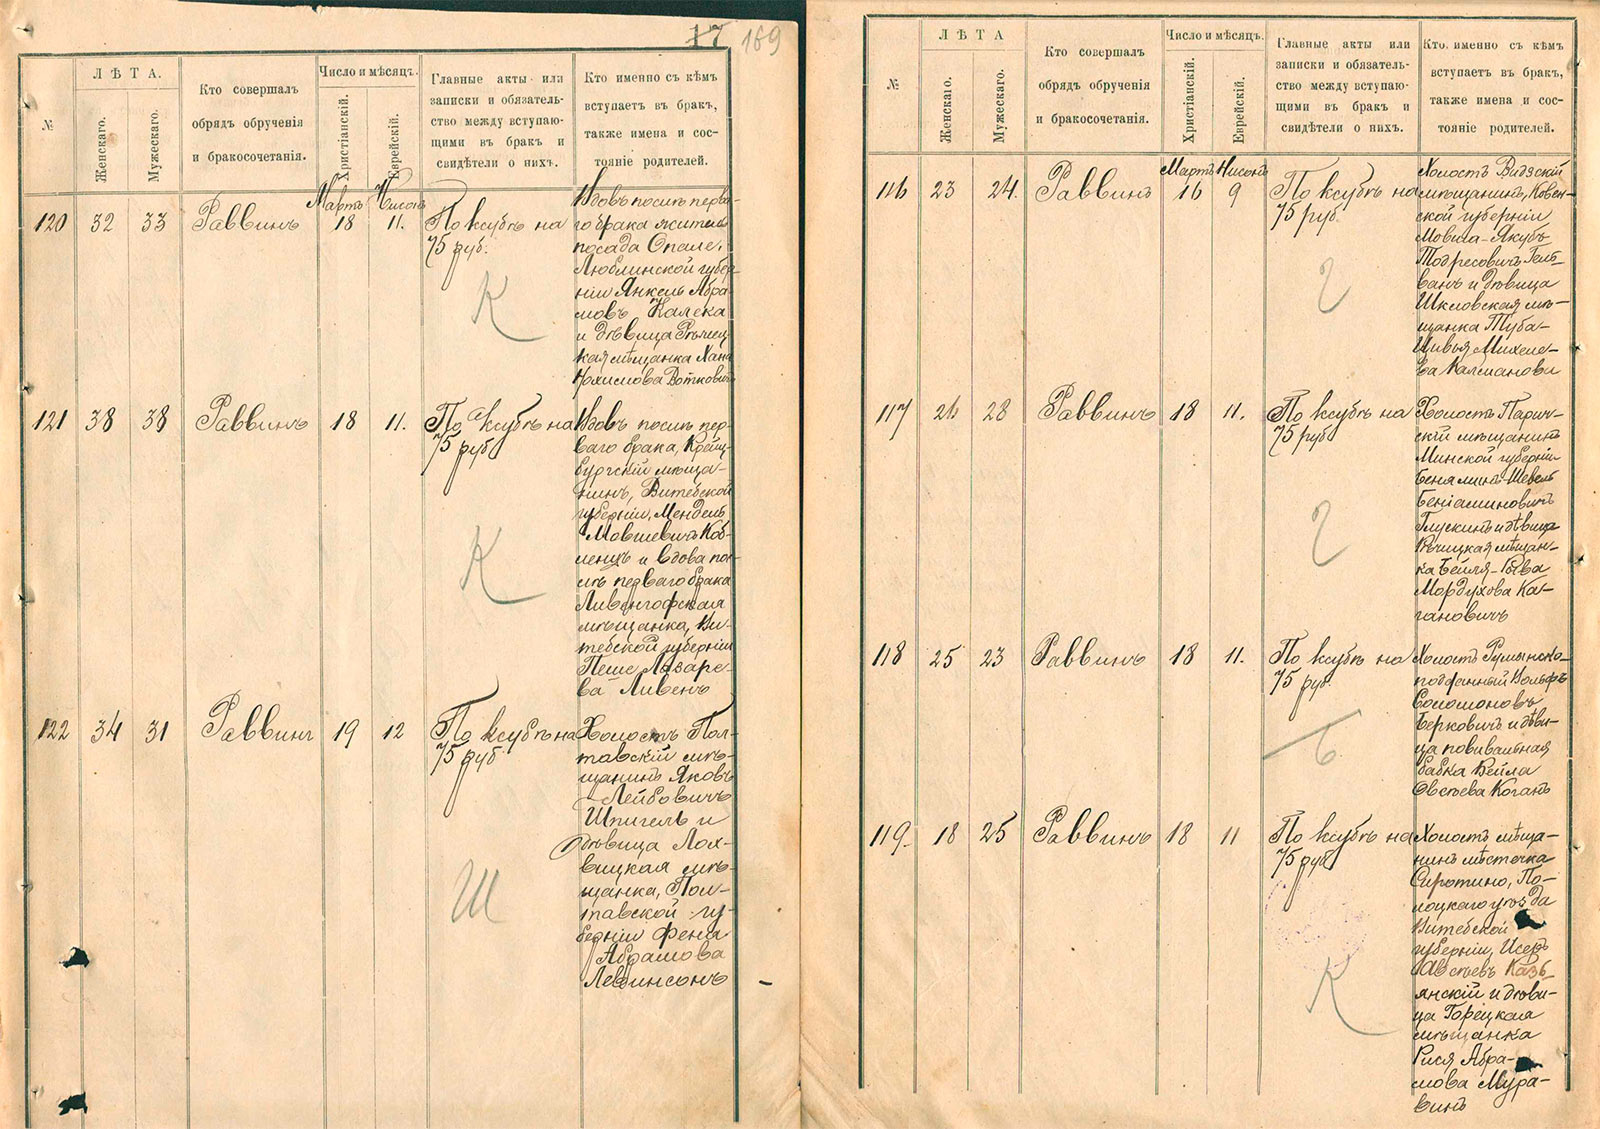 17 169
№
ЛѢТА.
Женскаго.
Мужескаго.
Кто совершалъ
обрядъ обрученія
и бракосочетанія.
Число и мѣсяцъ.
Христіанскій.
Еврейскій.
Главные акты или
записки и обязатель-
ство между вступаю-
щими въ бракъ и
свидѣтели о нихъ.
Кто именно съ кѣмъ
вступаетъ въ бракъ,
также имена и сос-
тояніе родителей.
Мартъ Нисонъ
120 32 33 Раввинъ 18 11. По ксубѣ на
75 руб.
К
Вдовъ послѣ перва-
го брака житель
посада Ополе,
Люблинской губер-
ніи Янкель Абра-
мовъ Калека
и дѣвица Рѣчиц-
кая мѣщанка Хана
Нохимова Воткович
121 38 38 Раввинъ 18 11. По ксубѣ на
75 руб
К
Вдовъ послѣ пер-
ваго брака, Крейц-
бургскій мѣща-
нинъ, Витебской
губерніи, Мендель
Мовшевичъ Коб-
ленцъ и вдова по-
слѣ перваго брака
Ливенгофская
мѣщанка, Ви-
тебской губерніи
Пеше Лазаре-
ва Ливенъ
122 34 31 Раввинъ 19 12 По ксубѣ на
75 руб
Ш
Холостъ Пол-
тавскій мѣ-
щанинъ Яковъ
Лейбовичъ
Шпигель и
дѣвица Лох-
вицкая мѣ-
щанка, Пол-
тавской гу-
берніи Фена
Абрамова
Левинсонъ
№
ЛѢТА
Женскаго.
Мужескаго.
Кто совершалъ
обрядъ обрученія
и бракосочетанія.
Число и мѣсяцъ.
Христіанскій.
Еврейскій.
Главные акты или
записки и обязатель-
ство между вступаю-
щими въ бракъ и
свидѣтели о нихъ.
Кто именно съ кѣмъ
вступаетъ въ бракъ,
также имена и сос-
тояніе родителей.
Мартъ Нисонъ
116 23 24. Раввинъ 16 9 По ксубѣ на
75 руб.
Г
Холостъ Видзскій
мѣщанинъ, Ковен-
ской губерніи
Мовша-Якубъ
Тодресовичъ Гель-
ванъ и дѣвица
Шкловская мѣ-
щанка Туба-
Цивья Михеле-
ва Калманови
117 26 28 Раввинъ 18 11. По ксубѣ на
75 руб
Г
Холостъ Парич-
скій мѣщанинъ
Минской губерніи
Бенямин-Шевель
Беніаминовичъ
Глускинъ и дѣвица
Рѣчицкая мѣщан-
ка Бейля-Рыва
Мордухова Ка-
гановичъ
118 25 23 Раввинъ 18 11. По ксубѣ на
75 руб.
Б
Холостъ Румынско-
подданный Вольфъ
Соломоновъ
Берковичъ и дѣви-
ца повивальная
бабка Бейла
Овсѣева Коганъ
119. 18 25 Раввинъ 18 11 По ксубѣ на
75 руб
К
Холостъ мѣща-
нинъ мѣстечка
Сиротино, По-
лоцкаго уѣзда
Витебской
губерніи, Исеръ
Овсѣевъ Казь-
янскій и дѣви-
ца Горецкая
мѣщанка
Рися Абра-
мова Мура-
винъ